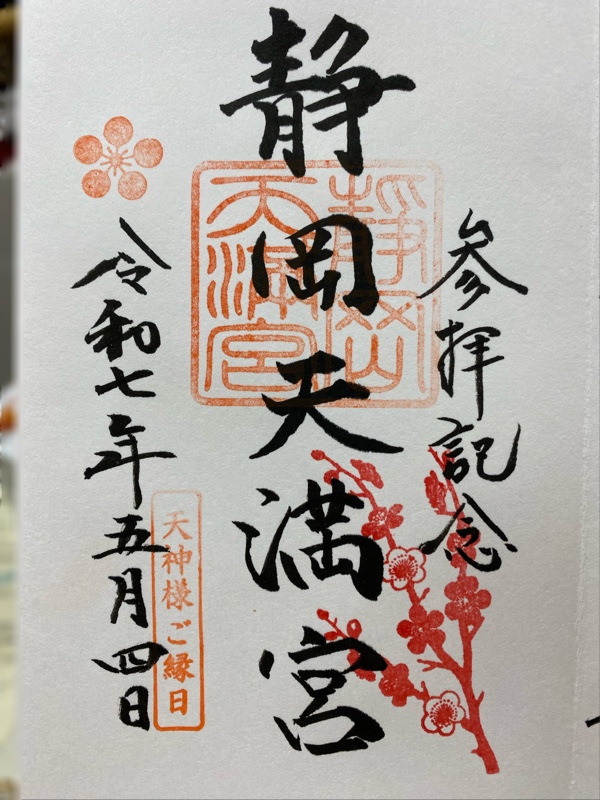 参拝記念
静岡天満宮
静岡天満宮
令和七年五月四日
天神様ご縁日